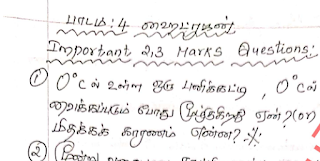 பாடம்: 4 ஹைட்ரஜன்
Important 2,3 Marks Questions:
① 0°C ல் உள்ள ஒரு பனிக்கட்டி, 0°C ல்
வைக்கப்படும் போது மிதக்கிறது ஏன்? (or)
மிதக்கக் காரணம் என்ன?
②